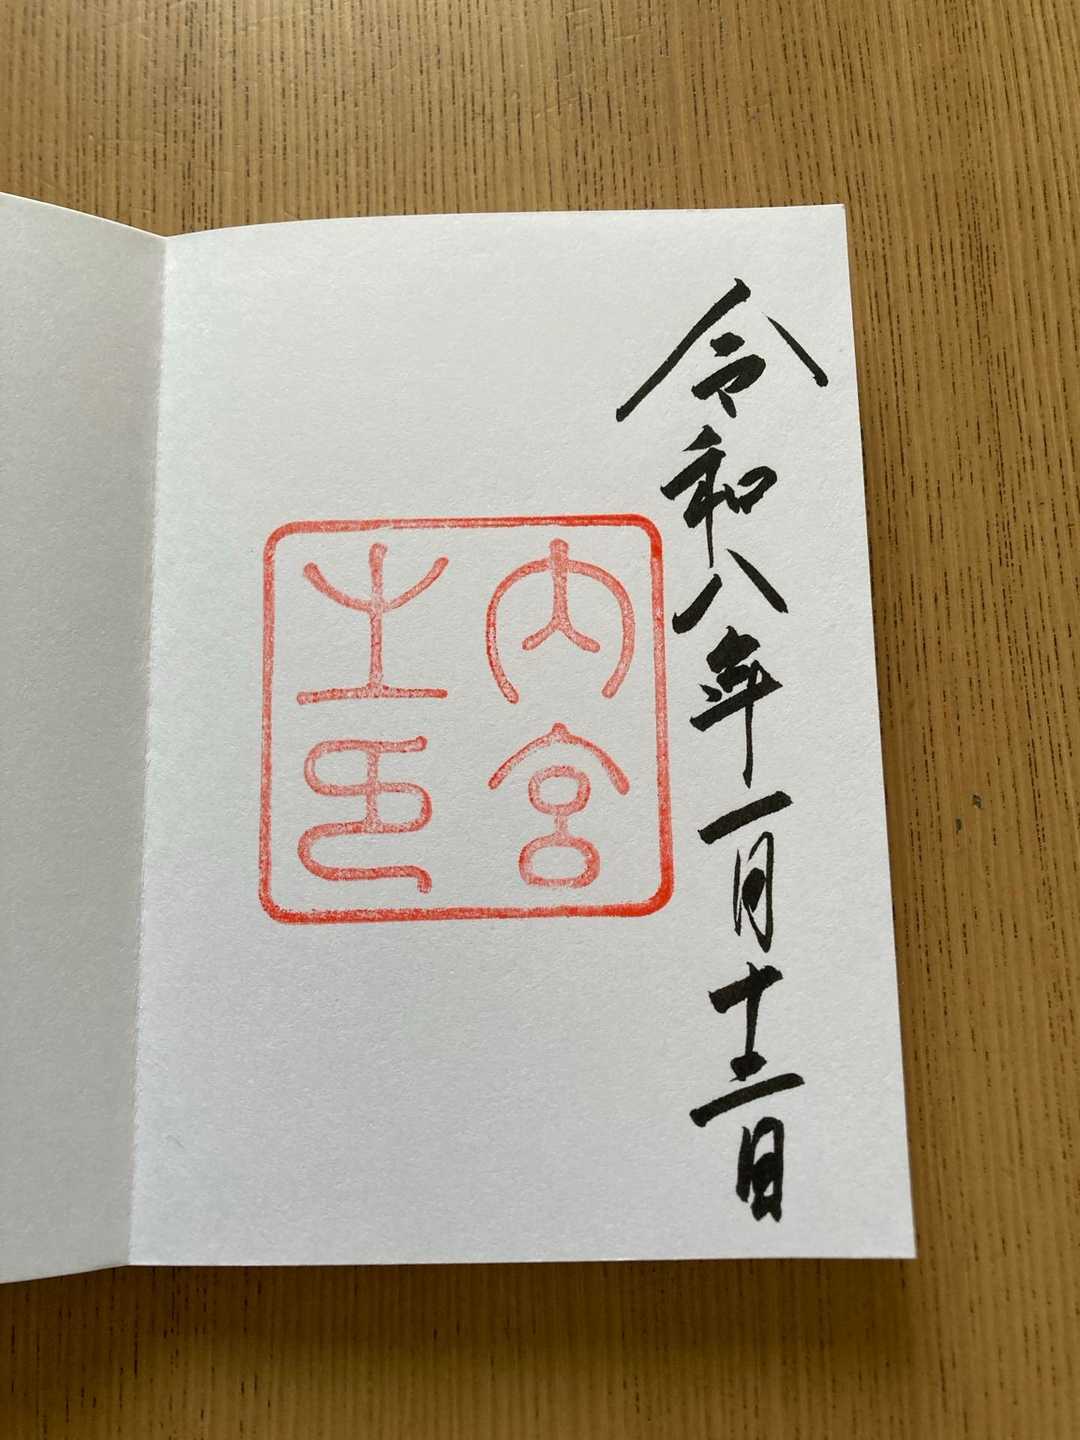 令和八年一月十二日
内宮
之印